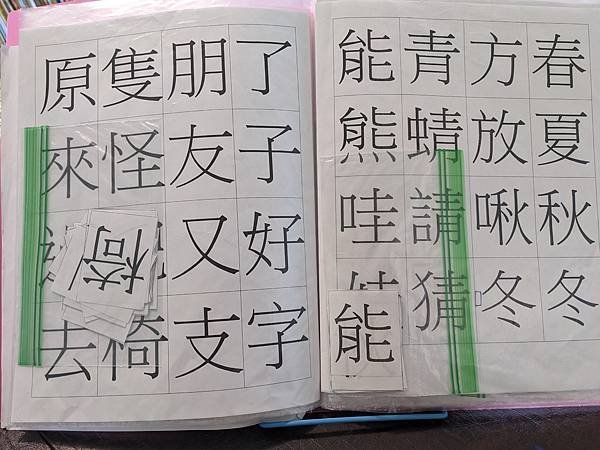 春夏秋冬
方放啾咚
青蜻請猜
能熊哇
能
了子好字
朋友又支
隻怪椅
原來去
椅